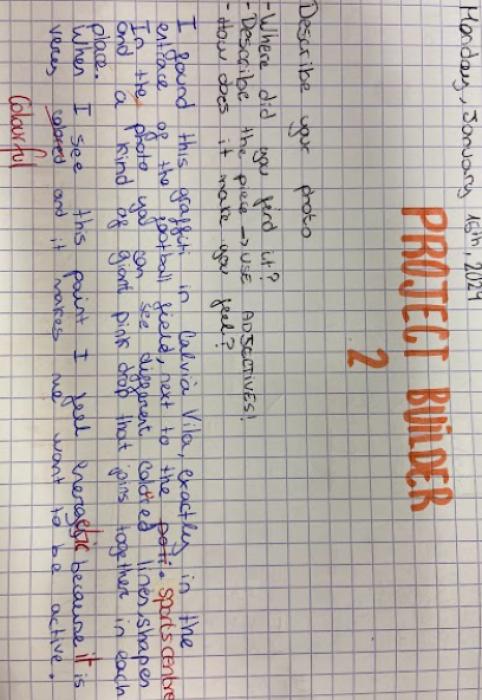 Monday, January 15th, 2024
PROJECT BUILDER
2
Describe your photo
- Where did you find it?
- Describe the piece → USE ADJECTIVES!
- How does it make you feel?
I found this graffiti in Calvià Vila, exactly in the
entrace of the football field, next to the poti. sports centre
In the photo you can see different colored lines, shapes
and a kind of giant pink drop that joins together in each
place.
When I see this paint I feel energetic because it is
very colored and it makes me want to be active.
Colourful